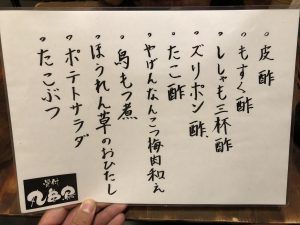 ・皮酢
・もずく酢
・ししゃも三杯酢
・ズリポン酢
・たこ酢
・やげんなんこつ梅肉和え
・鳥もつ煮
・ほうれん草のおひたし
・ポテトサラダ
・たこぶつ